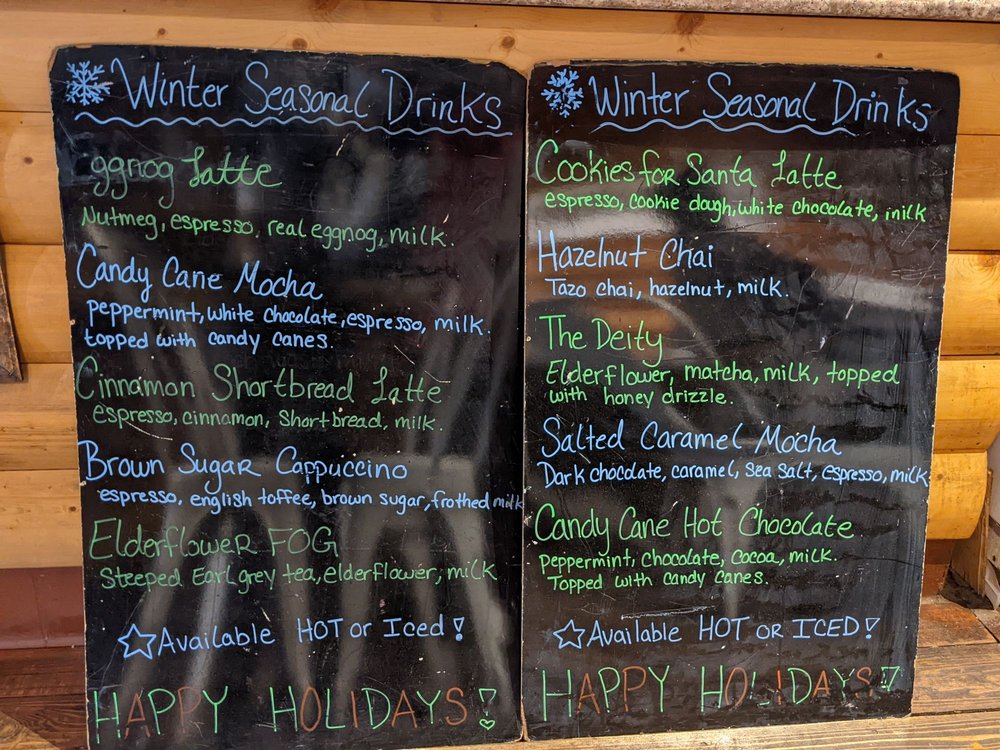 Winter Seasonal Drinks
ggnog Latte
Nutmeg, espresso, real eggnog, milk.
Candy Cane Mocha
peppermint, white chocolate, espresso, milk.
topped with candy canes.
Cinnamon Shortbread Latte
espresso, cinnamon, Shortbread, milk.
Brown Sugar Cappuccino
espresso, english toffee, brown sugar, frothed milk
Elderflower FOG
Steeped Earl grey tea, elderflower, milk
Available HOT or Iced!
HAPPY HOLIDAYS!
Winter Seasonal Drinks
Cookies for Santa Latte
espresso, cookie dough, white chocolate, milk
Hazelnut Chai
Tazo chai, hazelnut, milk.
The Deity
Elderflower, matcha, milk, topped
with honey drizzle.
Salted Caramel Mocha
Dark chocolate, caramel, sea salt, espresso, milk
Candy Cane Hot Chocolate
peppermint, chocolate, cocoa, milk.
Topped with candy canes.
Available HOT OR ICED!
HAPPY HOLIDAYS!